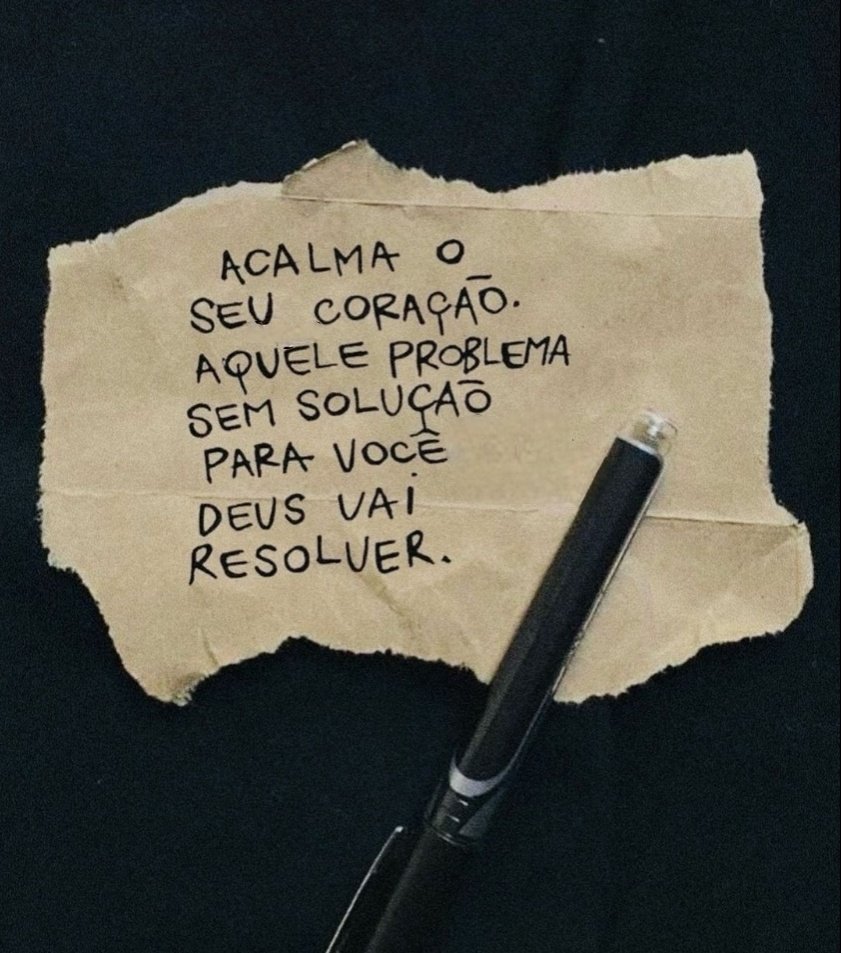 ACALMA O
SEU CORAÇÃO.
AQUELE PROBLEMA
SEM SOLUÇÃO
PARA VOCÊ
DEUS VAI
RESOLVER.